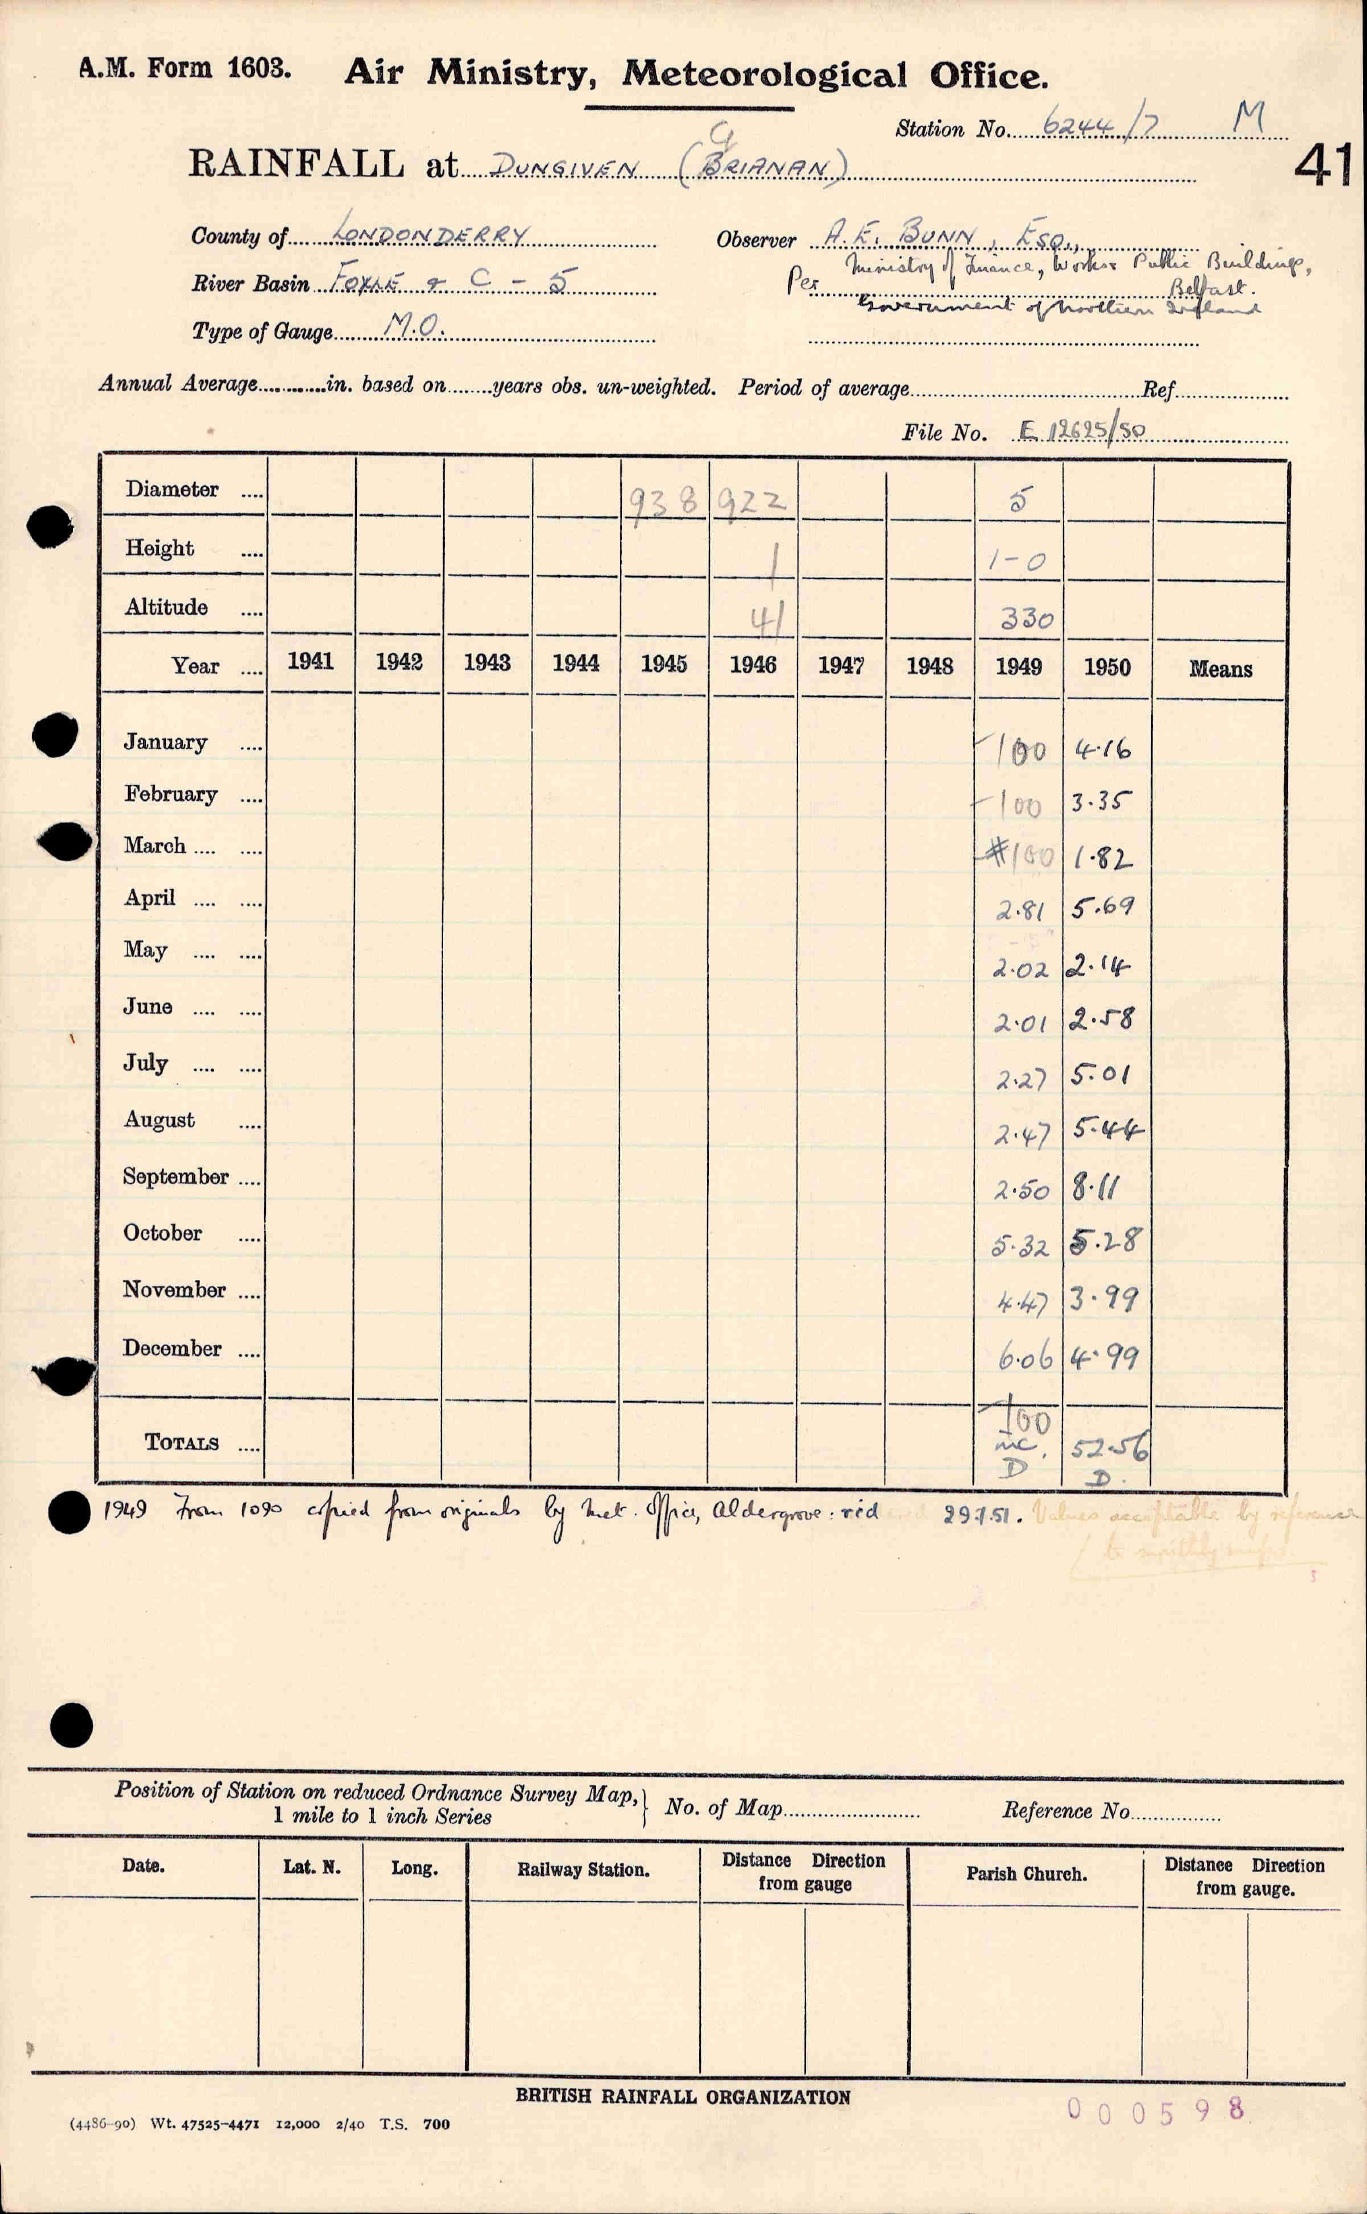 A.M. Form 1603. Air Ministry, Meteorological Office.
Station No. 6244/7 M
41
RAINFALL at DUNGIVEN (BRIANAN)
County of LONDONDERRY Observer A.E. BUNN, ESQ.,
River Basin FOYLE & C - 5 Per Ministry of Finance, Works & Public Buildings, Belfast.
Government of Northern Ireland
Type of Gauge M.O.
Annual Average............in. based on.......years obs. un-weighted. Period of average Ref
File No. E 12625/50
Diameter .... 938 922 5
Height .... 1 1-0
Altitude .... 41 330
Year .... 1941 1942 1943 1944 1945 1946 1947 1948 1949 1950 Means
January .... -100 4.16
February .... -100 3.35
March .... .... #100 1.82
April .... .... 2.81 5.69
May .... .... 2.02 2.14
June .... .... 2.01 2.58
July .... .... 2.27 5.01
August .... 2.47 5.44
September .... 2.50 8.11
October .... 5.32 5.28
November .... 4.47 3.99
December .... 6.06 4.99
-100
TOTALS .... inc. 52.56
D D.
1949 From 1090 copied from originals by Met. Office, Aldergrove: rcd 29.1.51. Values acceptable by reference
to monthly maps.
Position of Station on reduced Ordnance Survey Map, 1 mile to 1 inch Series } No. of Map Reference No.
Date. Lat. N. Long. Railway Station. Distance Direction from gauge Parish Church. Distance Direction from gauge.
BRITISH RAINFALL ORGANIZATION
000598
(4486-90) Wt. 47525-4471 12,000 2/40 T.S. 700